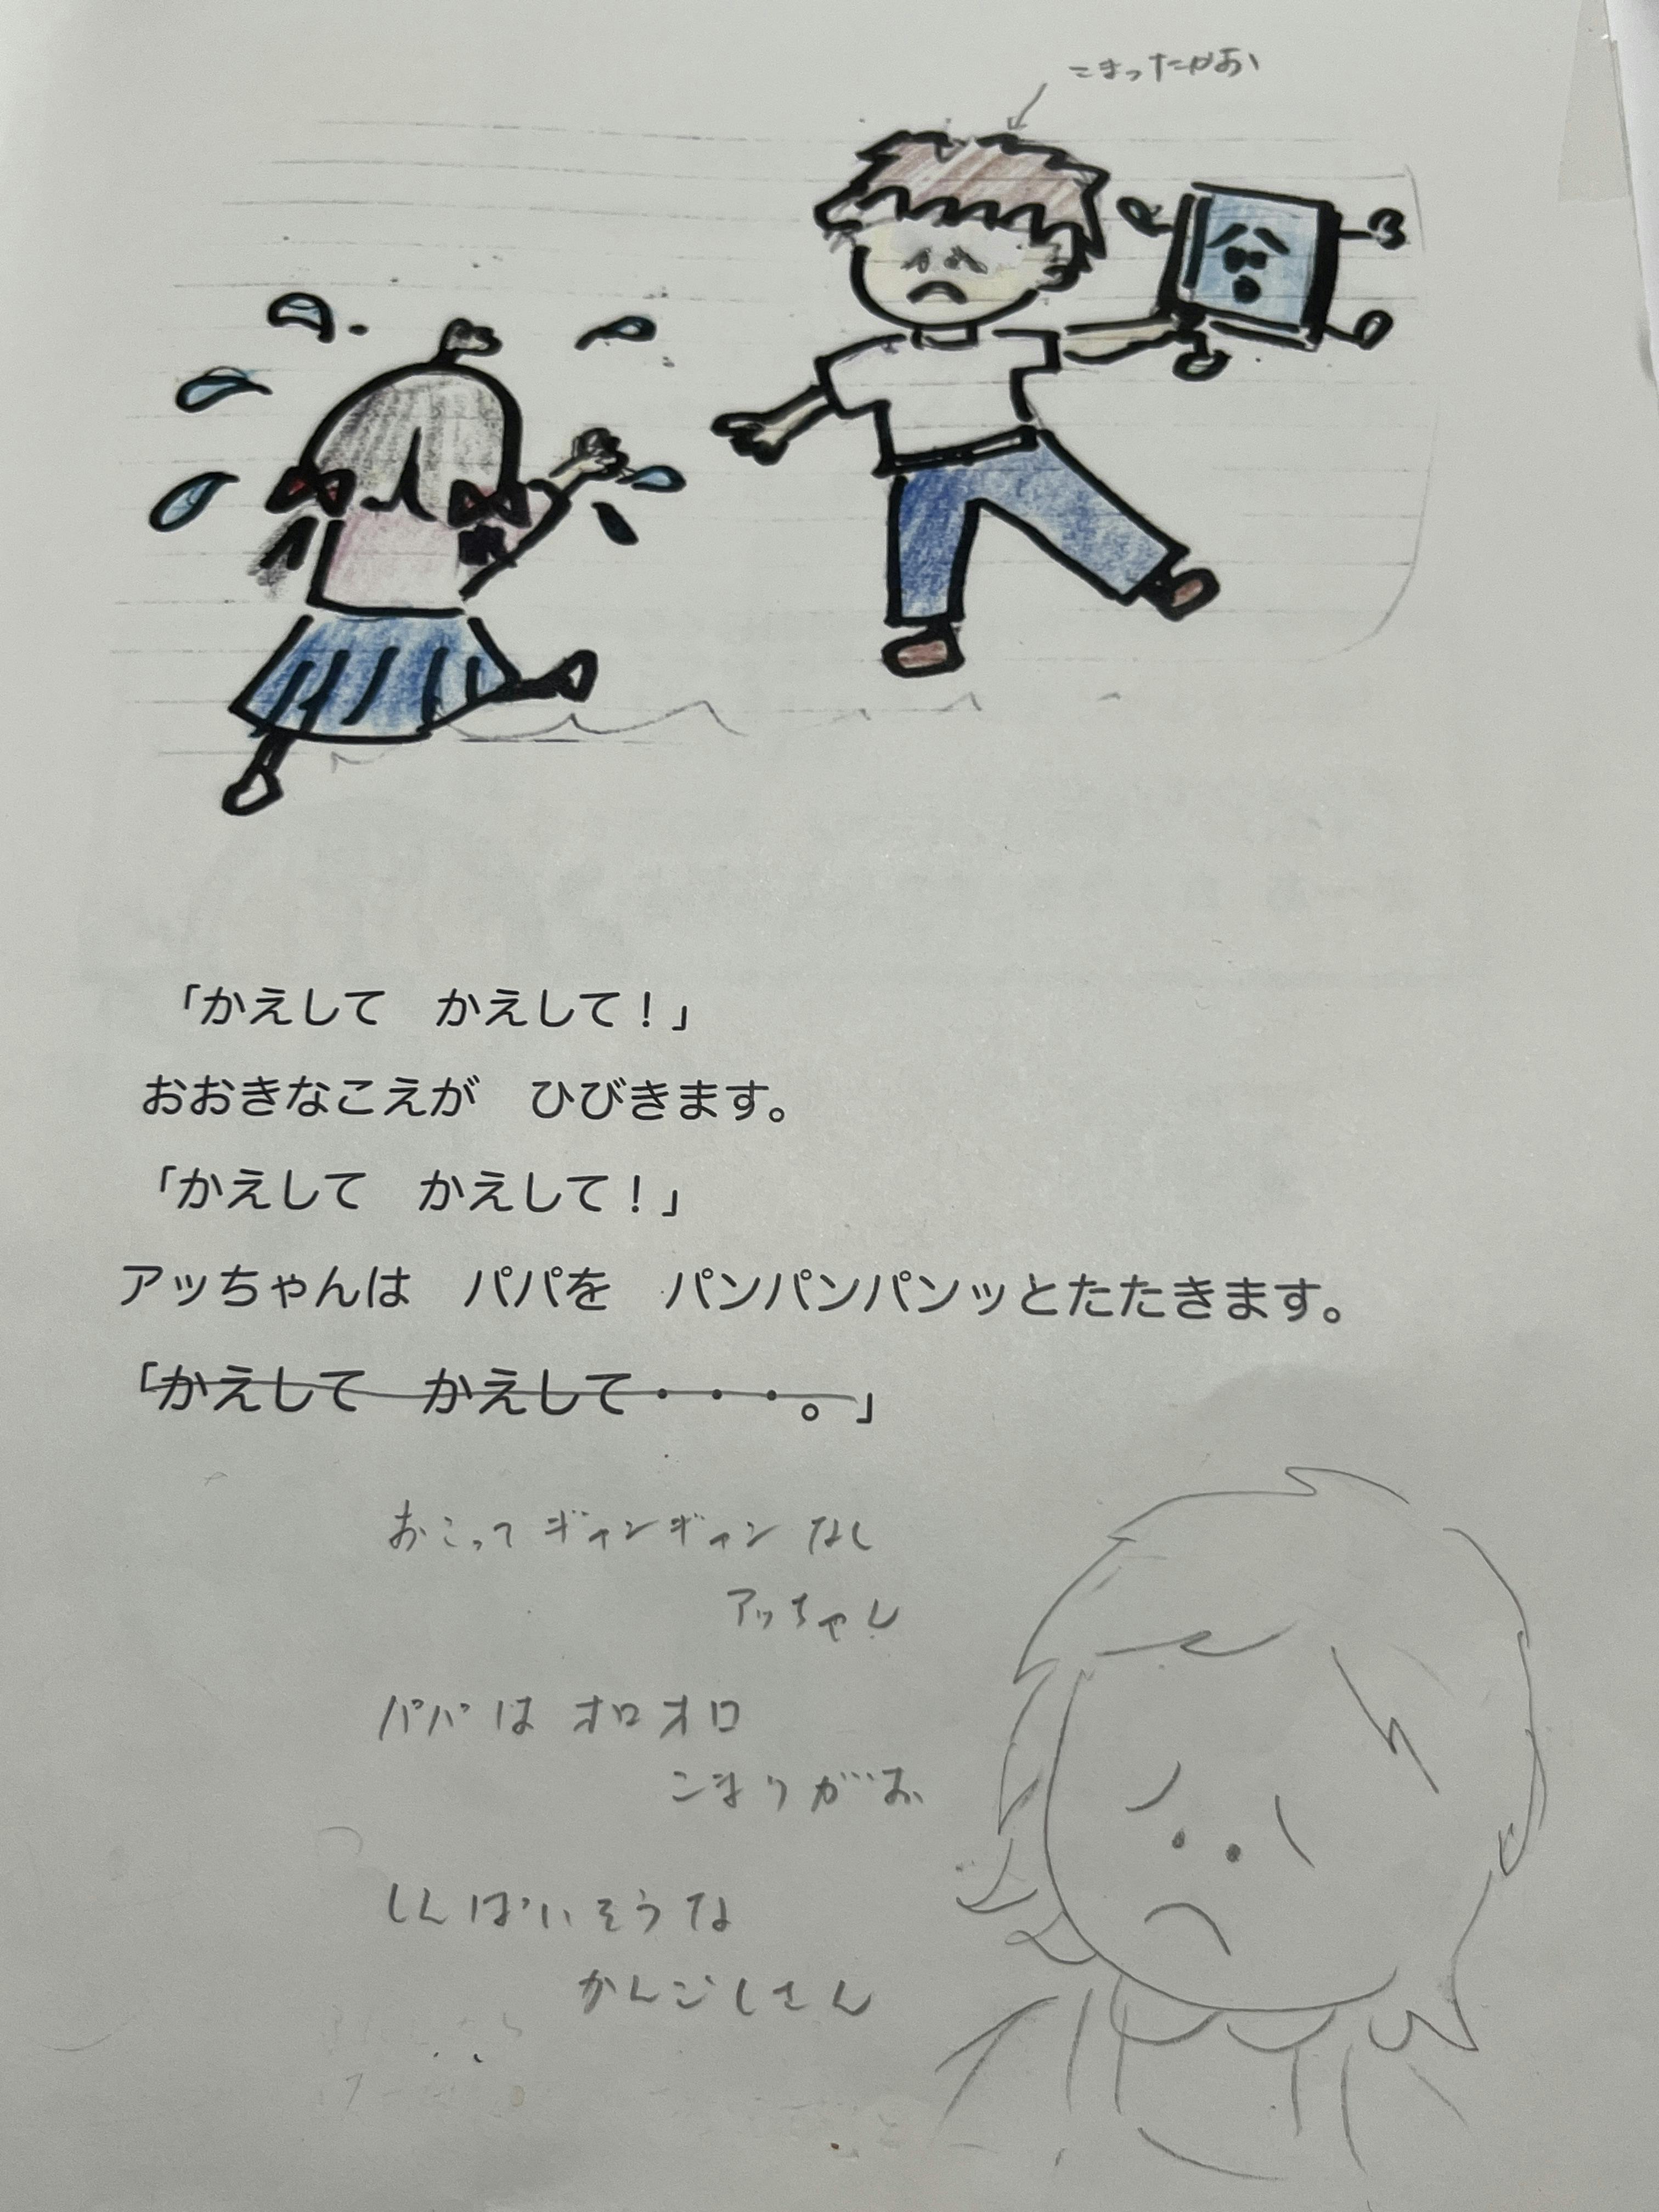 こまったかお
「かえして　かえして！」
おおきなこえが　ひびきます。
「かえして　かえして！」
アッちゃんは　パパを　パンパンパンッとたたきます。
「かえして　かえして・・・。」
おこって ギャンギャン なし
アッちゃん
パパは オロオロ
こまりがお
しんぱいそうな
かんごしさん